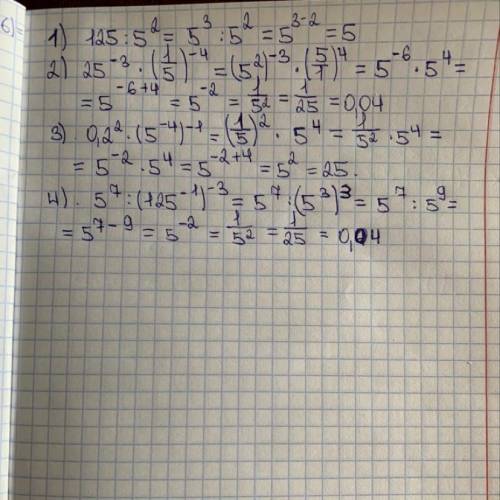 6)=
1) 125 : 5² = 5³ : 5² = 5³⁻² = 5
2) 25⁻³ · (1/5)⁻⁴ = (5²)⁻³ · (5/1)⁴ = 5⁻⁶ · 5⁴ =
= 5⁻⁶⁺⁴ = 5⁻² = 1/5² = 1/25 = 0,04
3) 0,2² · (5⁻⁴)⁻¹ = (1/5)² · 5⁴ = 1/5² · 5⁴ =
= 5⁻² · 5⁴ = 5⁻²⁺⁴ = 5² = 25.
4). 5⁷ : (125⁻¹)⁻³ = 5⁷ : (5³)³ = 5⁷ : 5⁹ =
= 5⁷⁻⁹ = 5⁻² = 1/5² = 1/25 = 0,04